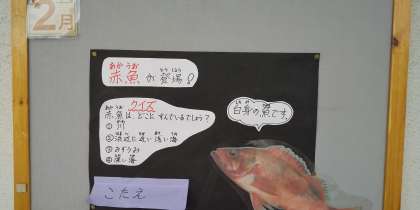 2月
赤魚が登場!
あかうお とうじょう
クイズ
赤魚は、どこにすんでいるでしょう?
①川
②浜辺に近い浅い海
③みずうみ
④深い海
白身の魚です。
こたえ